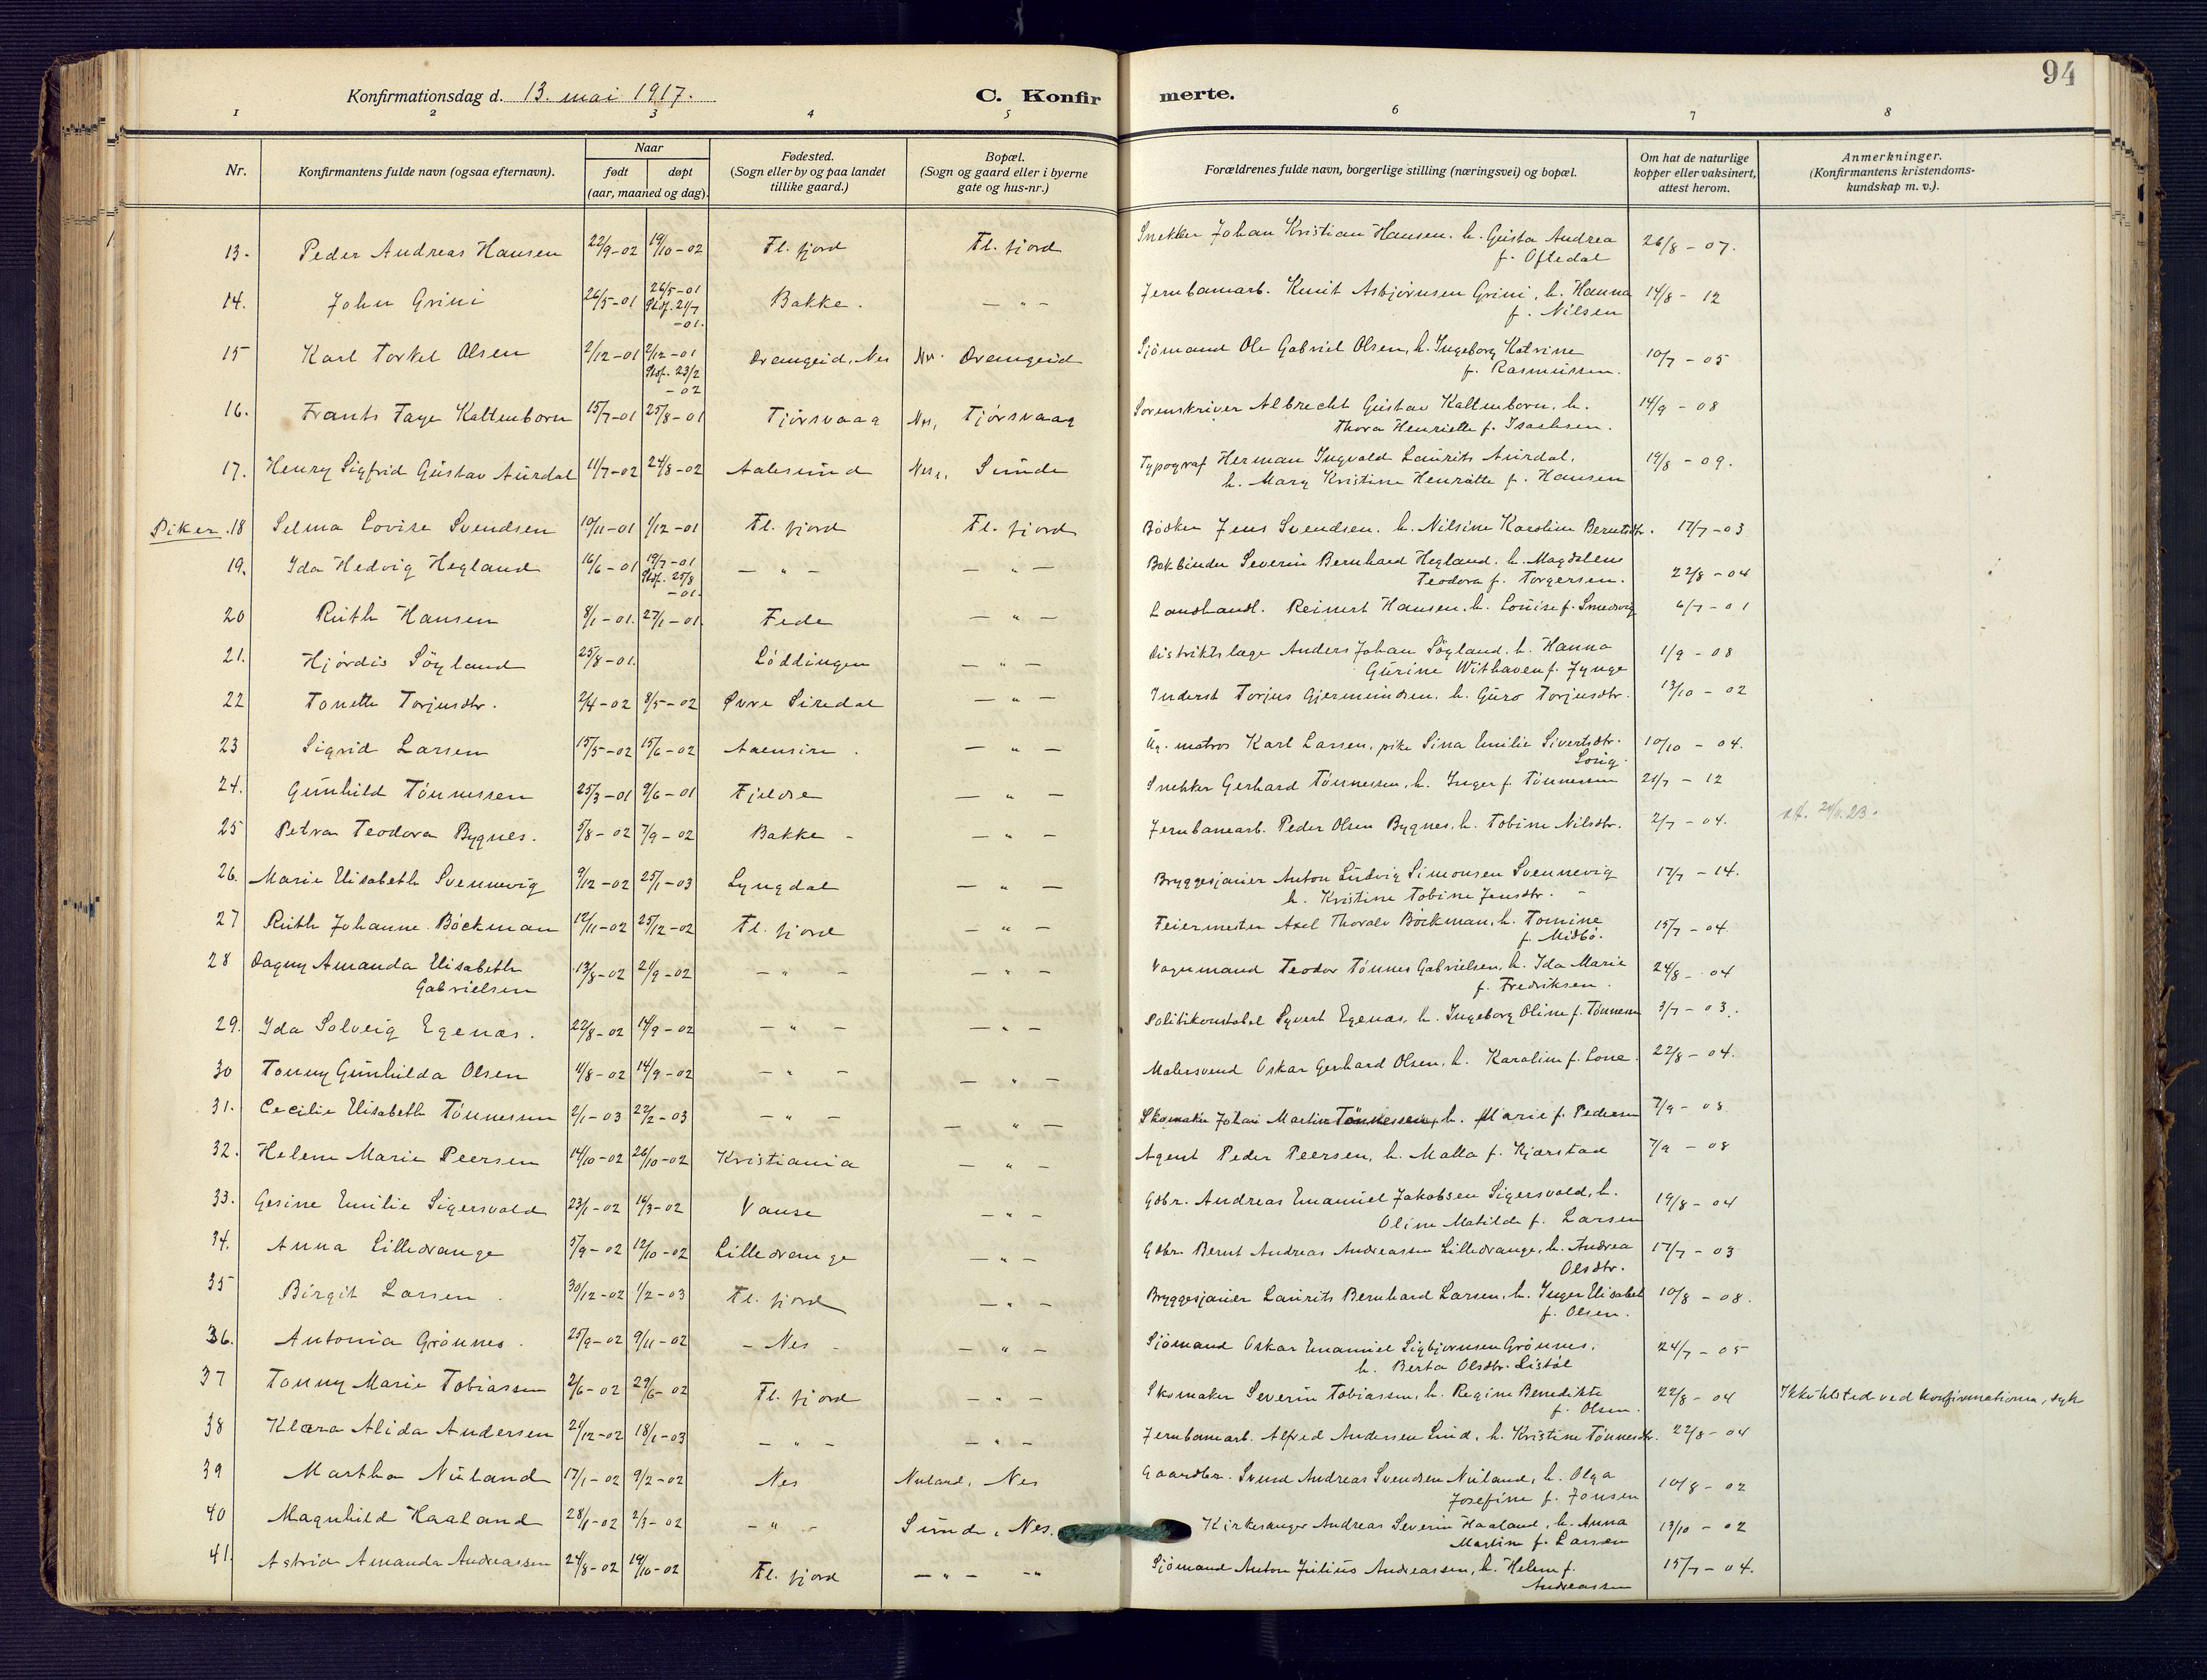 94
Konfirmationsdag d. 13. mai 1917.
C. Konfirmerte.
1 2 3 4 5 6 7 8
Nr.
Konfirmantens fulde navn (ogsaa efternavn).
Naar
født døpt
(aar, maaned og dag).
Fødested.
(Sogn eller by og paa landet
tillike gaard.)
Bopæl.
(Sogn og gaard eller i byerne
gate og hus-nr.)
Forældrenes fulde navn, borgerlige stilling (næringsvei) og bopæl.
Om hat de naturlige
kopper eller vaksinert,
attest herom.
Anmerkninger.
(Konfirmantens kristendoms-
kundskap m. v.).
13. Peder Andreas Hansen 22/9-02 19/10-02 Fl. fjord Fl. fjord Snekker Johan Kristian Hansen. h. Gusta Andrea f. Oftedal 26/8 - 07.
14. John Grini 26/5-01 26/5-01 Stsf. 21/7 -01. Bakke. — " — Jernbanearb. Knut Asbjørnsen Grini, h. Hanna f. Nilsen 14/8 - 12
15 Karl Torkel Olsen 2/12-01 2/12-01 Stsf. 23/2 -02 Drangeid, Nes Nes. Drangeid Sjömand Ole Gabriel Olsen, h. Ingeborg Katrine f. Rasmussen. 10/7 - 05
16. Frants Faye Kaltenborn 15/7-01 25/8-01 Tjörsvaag Nes, Tjörsvaag Sorenskriver Albrecht Gustav Kaltenborn, h. Thora Henriette f. Isachsen. 14/9 - 08
17. Henry Sigfrid Gustav Aurdal 11/7-02 24/8-02 Aalesund Nes, Sunde Typograf Herman Ingvald Laurits Aurdal, h. Mary Kristine Henriette f. Hansen 19/8 - 09.
Piker. 18 Selma Lovise Svendsen 10/11-01 1/12-01 Fl. fjord Fl. fjord Bödker Jens Svendsen. h. Nilsine Karoline Berntsdtr. 17/7-03
19. Ida Hedvig Hegland 16/6-01 19/7-01 Stsf. 25/8 -01. — " — — " — Bokbinder Severin Bernhard Hegland. h. Magdalene Teodora f. Torgersen. 22/8-04
20 Ruth Hansen 8/1-01. 27/1-01. Fede — " — Landhandl. Reinert Hansen. h. Louise f. Smedsvig 6/7-01
21. Hjördis Sögland 25/8-01. Löddingen — " — Distriktslæge Anders Johan Sögland. h. Hanna Gurine Withaven f. Fynge 1/9 - 08
22 Tonette Torjusdtr. 2/4-02 8/5-02 Øvre Siredal — " — Inderst Torjus Gjermundsen. h. Guro Torjusdtr. 13/10 - 02
23 Sigrid Larsen 15/5-02 15/6-02 Aaensire. — " — Ug. matros Karl Larsen, pike Sina Emilie Sivertsdtr. Loug 10/10 - 04.
24. Gunhild Tönnessen 25/3-01 9/6-01 Fjeldse — " — Snekker Gerhard Tönnessen, h. Inger f. Tönnessen 21/7 - 12
25 Petra Teodora Bygnes. 5/8-02 7/9-02 Bakke - — " — Jernbanearb. Peder Olsen Bygnes, h. Tobine Nilsdtr. 2/7 - 04.
26. Marie Elisabeth Svennevig 9/12-02 25/1-03 Lyngdal — " — Bryggesjauer Anton Ludvig Simonsen Svennevig h. Kristine Tobine Jensdtr. 17/7 - 14.
27 Ruth Johanne Böckman 12/11-02 25/12-02 Fl. fjord — " — Feiermester Axel Thoralv Böckman, h. Tomine f. Midbö. 15/7 - 04
28 Dagny Amanda Elisabeth Gabrielsen 13/8-02 21/9-02 — " — — " — Vognmand Teodor Tönnes Gabrielsen, h. Ida Marie f. Fredriksen. 24/8 - 04
29. Ida Solveig Egenæs. 22/8-02 14/9-02 — " — — " — Politikonstabel Syvert Egenæs, h. Ingeborg Oline f. Tönnesen 3/7 - 03.
30 Tonny Gunhilda Olsen 11/8-02 14/9-02 — " — — " — Malersvend Oskar Gerhard Olsen, h. Karoline f. Lone 22/8 - 04.
31. Cecilie Elisabeth Tönnessen 2/1-03 22/2-03 — " — — " — Skomaker Johan Martin Tönnessen, h. Marie f. Pedersen 7/9 - 08
32. Helene Marie Peersen 14/10-02 26/10-02 Kristiania — " — Agent Peder Peersen, h. Malla f. Kjærstad 7/9 - 08
33. Gesine Emilie Sigersvold 23/1-02 16/3-02 Vanse — " — Gdbr. Andreas Emanuel Jakobsen Sigersvold, h. Oline Matilde f. Larsen 19/8 - 04
34. Anna Lilledrange 5/9-02 12/10-02 Lilledrange — " — Gdbr. Bernt Andreas Andreassen Lilledrange, h. Andrea Olsdtr. 17/7 - 03
35 Birgit Larsen. 30/12-02 1/2-03 Fl. fjord — " — Bryggesjauer Laurits Bernhard Larsen, h. Inger Elisabet f. Olsen. 10/8 - 08.
36. Antonia Grönnes. 25/9-02 9/11-02 - Nes - — " — Sjömand Oskar Emanuel Sigbjörnsen Grönnes, h. Berta Olsdtr. Listöl 24/7 - 05
37 Tonny Marie Tobiassen 2/6-02 29/6-02 Fl. fjord — " — Skomaker Severin Tobiassen, h. Regine Benedikte f. Olsen. 22/8 - 04 Ikke tilsted ved konfirmationen, syk
38 Klara Alida Andersen 21/12-02 18/1-03 — " — — " — Jernbanearb. Alfred Andersen Lund, h. Kristine Tönnesdtr. 22/8 - 04
39 Martha Nuland 17/1-02 9/2-02 Nes Nuland, Nes Gaardbr. Svend Andreas Svendsen Nuland, h. Olga Josefine f. Jonsen 10/8 - 02
40 Magnhild Haaland 28/1-02 2/3-02 — " — Sunde, Nes. Kirkesanger Andreas Severin Haaland, h. Anna Martine f. Larsen 13/10 - 02
41. Astrid Amanda Andreassen 24/8-02 19/10-02 Fl. fjord — " — — " Sjömand Anton Julius Andreassen, h. Helene f. Andreassen 15/7 - 04.